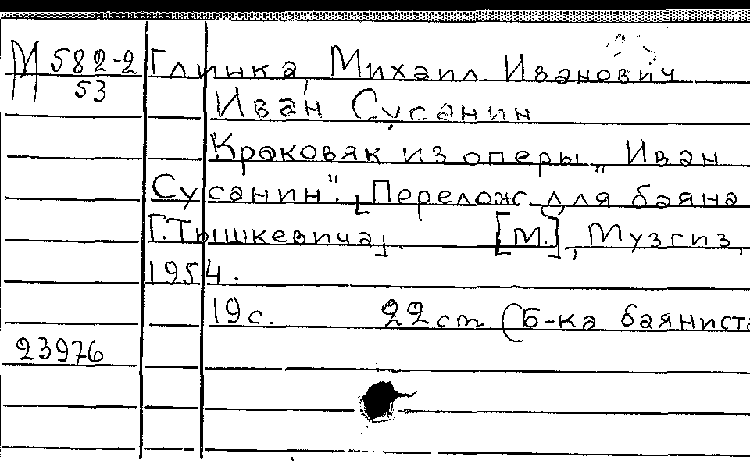 М 582-2
53
Глинка, Михаил Иванович
Иван Сусанин
Краковяк из оперы „Иван
Сусанин". [Перелож. для баяна
Г. Тышкевича]. [М.], Музгиз,
1954.
19 с. 22 см (Б-ка баяниста
23976